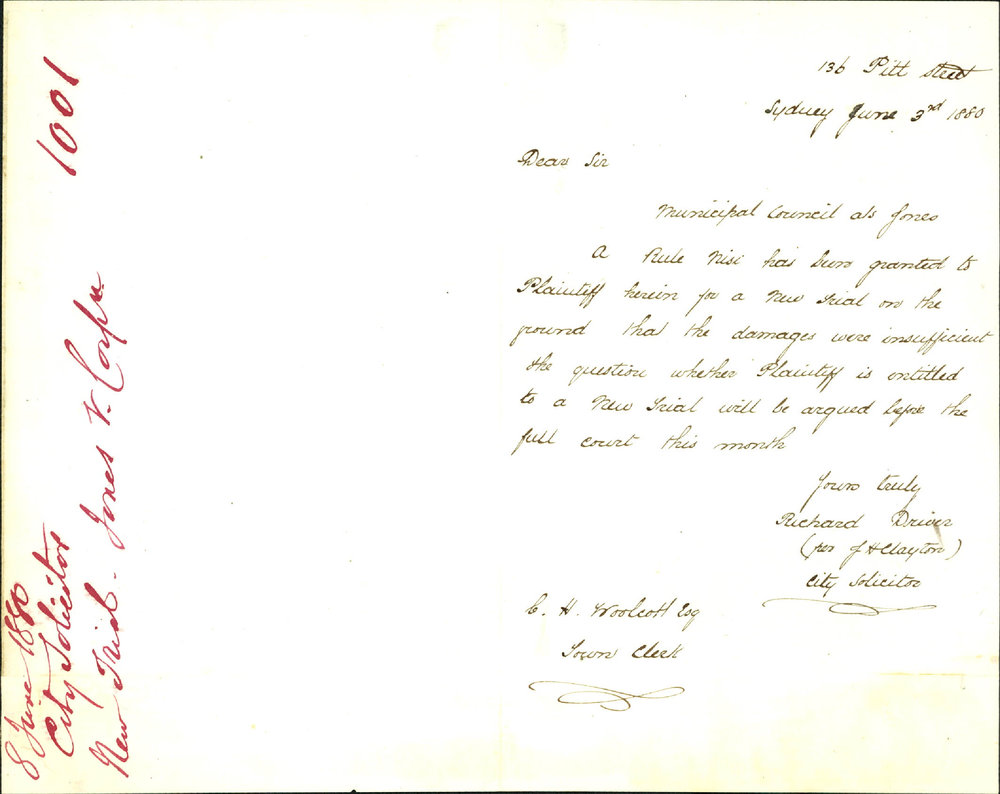 136 Pitt Street
Sydney June 3rd 1880
Dear Sir
Municipal Council ats Jones
A Rule Nisi has been granted to
Plaintiff herein for a New Trial on the
ground that the damages were insufficient
the question whether Plaintiff is entitled
to a New Trial will be argued before the
full court this month
Yours truly
Richard Driver
(per J H Clayton)
City Solicitor
C. H. Woolcott Esq
Town Clerk
1001
8 June 1880
City Solicitor
New Trial - Jones v. Corpn.